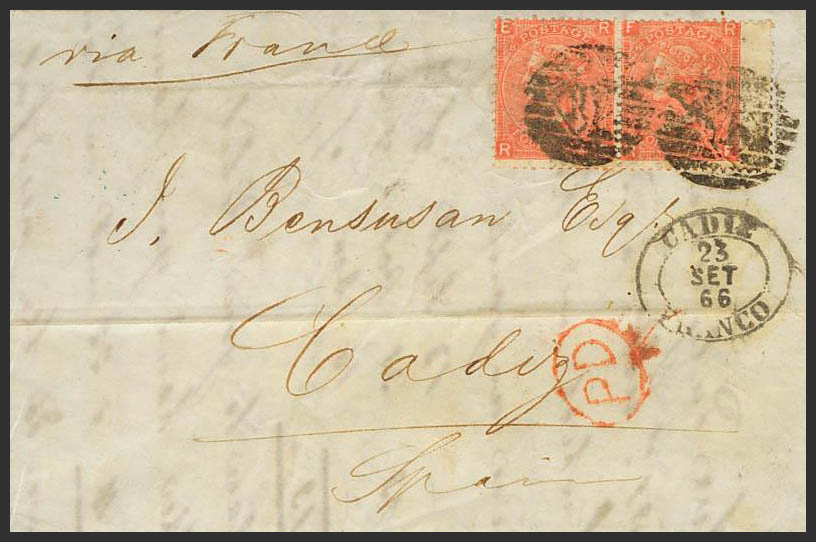 via France
E R F R
POSTAGE POSTAGE
R E R F
J. Bensusan Esqr.
CADIZ
23
SET
66
FRANCO
Cadiz
PD
Spain